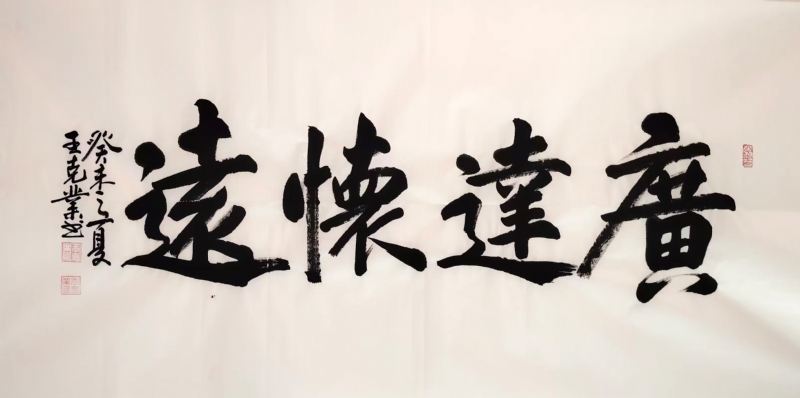 廣達懷遠
癸未之夏
王克業书